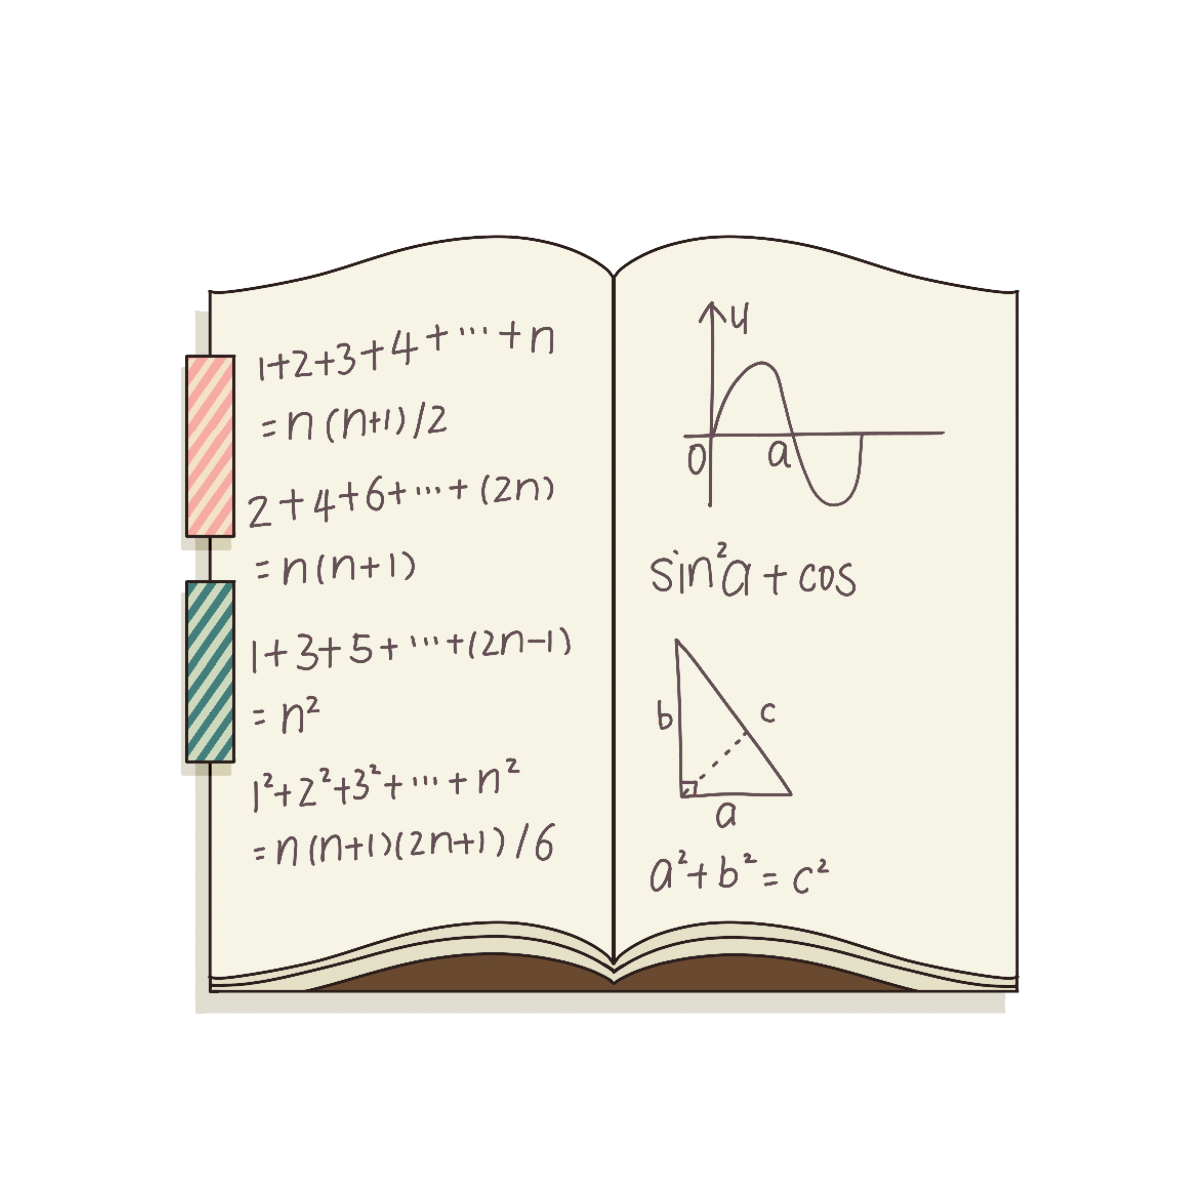 1+2+3+4+···+n
=n(n+1)/2
2+4+6+···+(2n)
=n(n+1)
1+3+5+···+(2n-1)
=n²
1²+2²+3²+···+n²
=n(n+1)(2n+1)/6
y
0 a
sin²a+cos
b c
a
a²+b²=c²